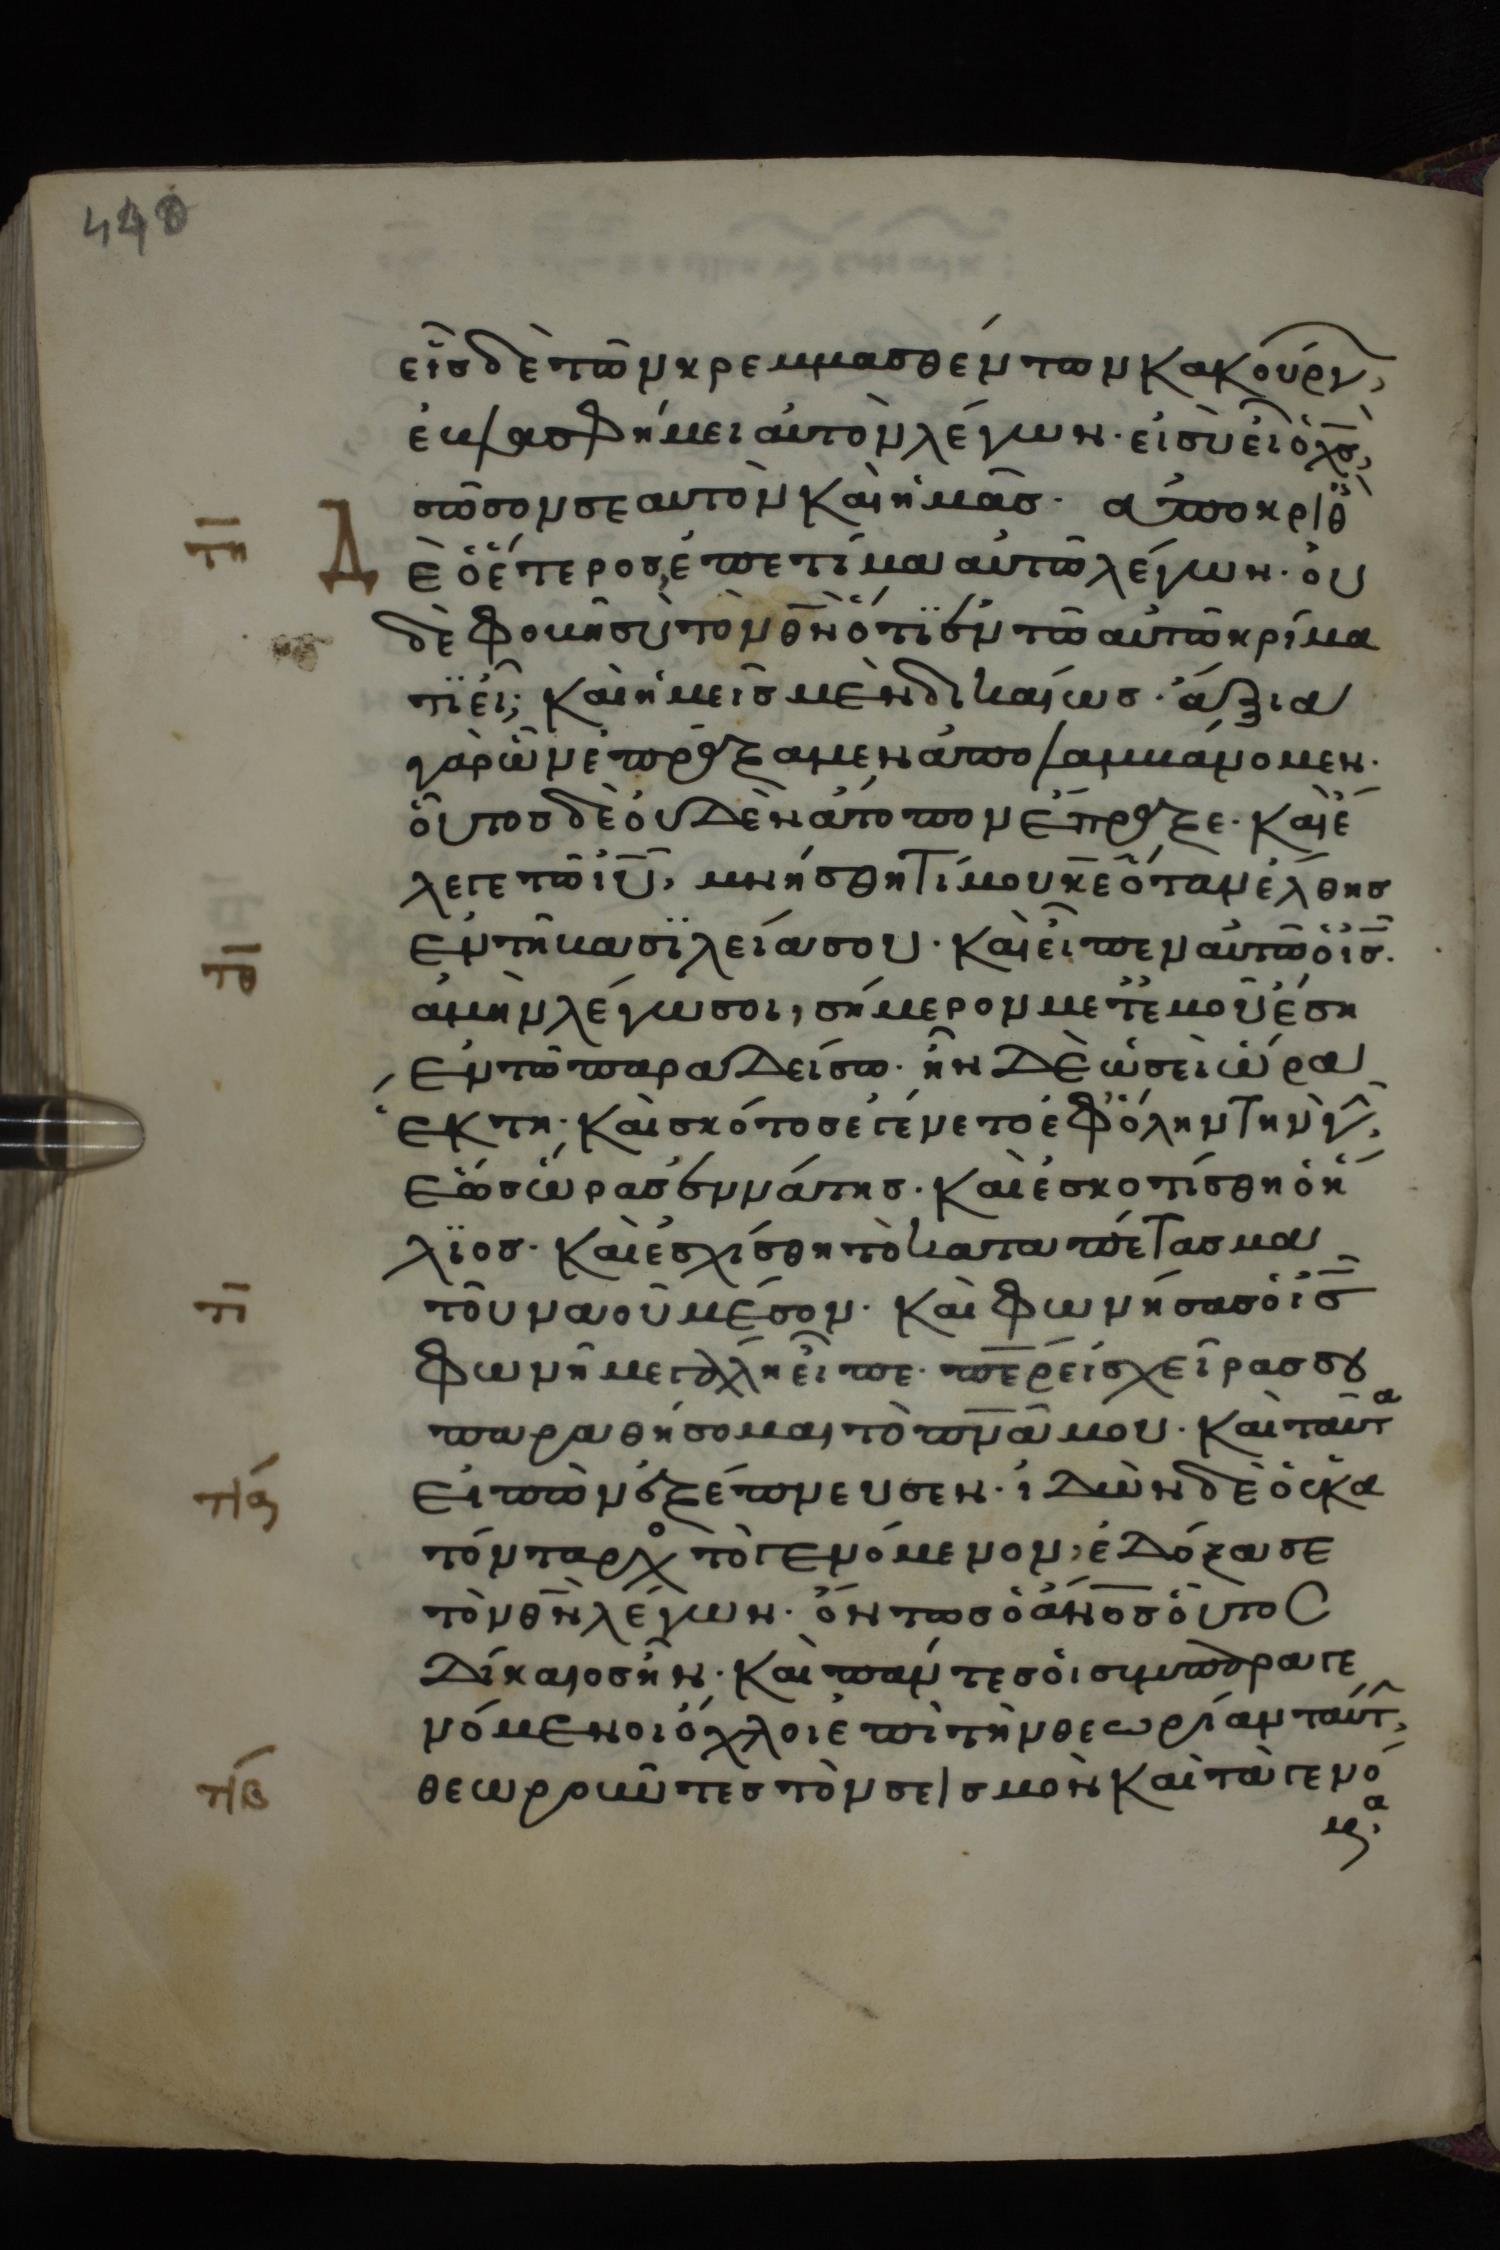 448
εἷς δὲ τῶν κρεμμασθέντων κακούργ,
ἐβλασφήμει αὐτὸν λέγων· εἰ σὺ εἶ ὁ χς,
σῶσον σεαυτὸν καὶ ἡμᾶς· ἀποκριθ
πη Δ ὲ ὁ ἕτερος, ἐπετίμα αὐτῶ λέγων· οὐ
δὲ φοβῆ σὺ τὸν θν ὅτι ἐν τῶ αὐτῶ κρίμα
τι εἶ; καὶ ἡμεῖς μὲν δικαίως· ἄξια
γὰρ ὧν ἐπράξαμεν ἀπολαμβάνομεν·
οὗτος δὲ οὐδὲν ἄτοπον ἔπραξε· καὶ ἔ
λεγε τῶ ιυ, μνήσθητί μου κε ὅταν ἔλθης
πθ ἐν τῆ βασιλεία σου· καὶ εἶπεν αὐτῶ ὁ ις·
ἀμὴν λέγω σοι, σήμερον μετ' ἐμοῦ ἔση
ἐν τῶ παραδείσω· ἦν δὲ ὡσεὶ ὥρα
ἕκτη· καὶ σκότος ἐγένετο ἐφ' ὅλην τὴν γῆν,
ἕως ὥρας ἐννάτης· καὶ ἐσκοτίσθη ὁ ἥ
λιος· καὶ ἐσχίσθη τὸ καταπέτασμα
π τοῦ ναοῦ μέσον· καὶ φωνήσας ὁ ις
φωνῆ μεγάλη εἶπε· περ εἰς χεῖρας σου
παραθήσομαι τὸ πνα μου· καὶ ταῦτα
πα εἰπὼν ἐξέπνευσεν· ἰδὼν δὲ ὁ ἑκα
τόνταρχο τὸ γενόμενον, ἐδόξασε
τὸν θν λέγων· ὄντως ὁ ανος οὗτος
δίκαιος ἦν· καὶ πάντες οἱ συμπαραγε
νόμενοι ὄχλοι ἐπὶ τὴν θεωρίαν ταύτ,
πβ θεωροῦντες τὸν σεισμὸν καὶ τὰ γενό
μ,α